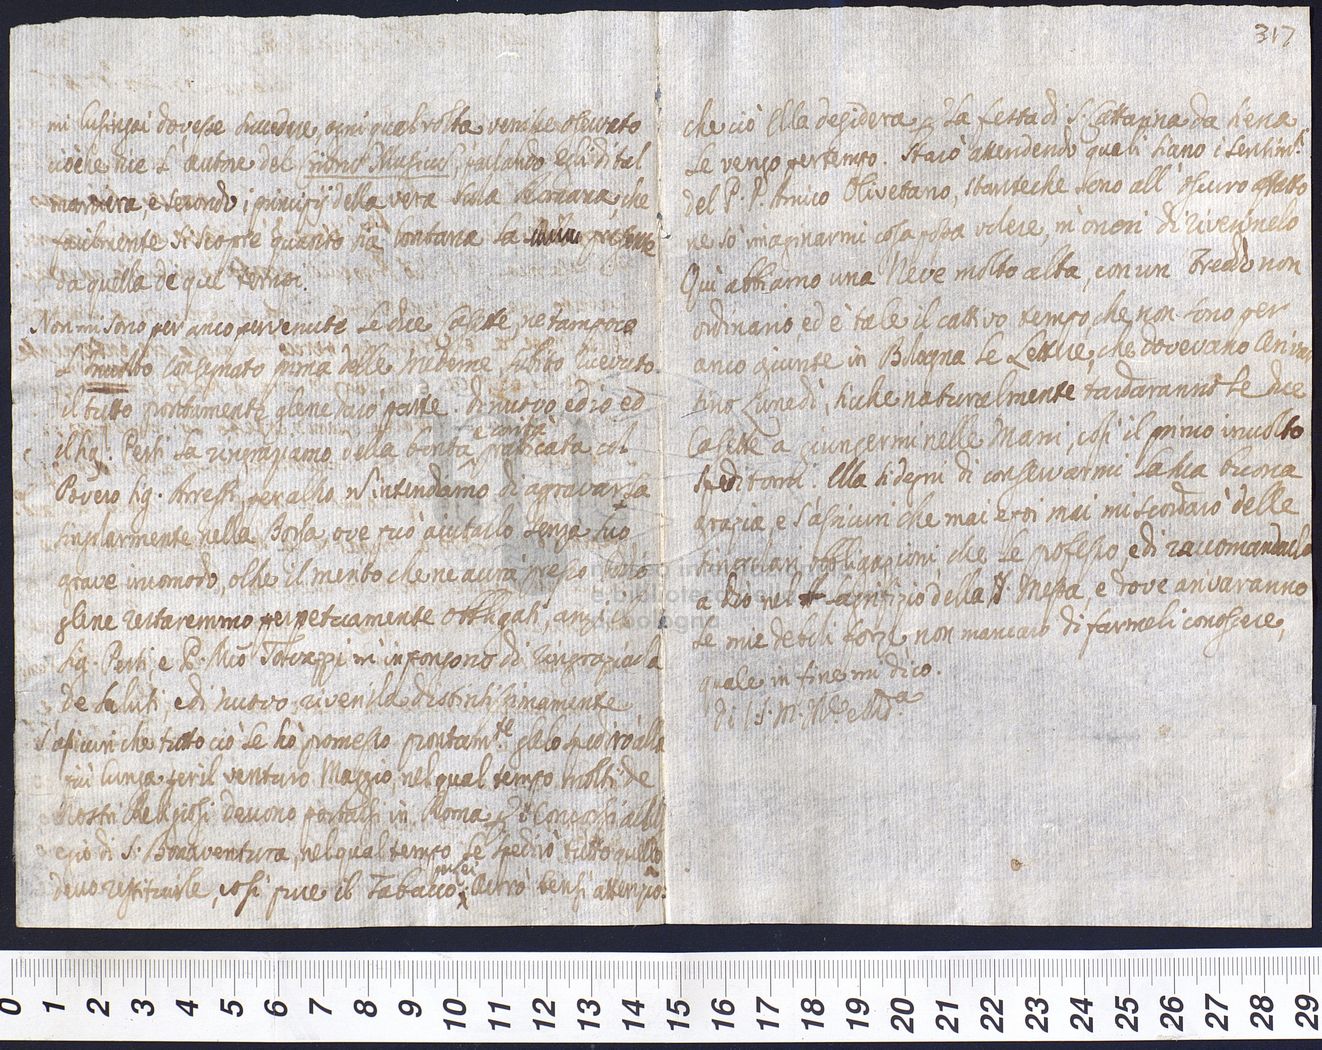 317
mi lusingai dovesse succedere ogni qual volta venisse osservato
ciò che dice l'autore del Musicus, parlando Egli di tal
maniera, e secondo i principij della vera Scuola Romana, che
facilmente si scopre quanto sia lontana la presente
da quella de que' tempi.
Non mi sono per anco pervenute le due Casette, ne tampoco
l'involto consegnato prima delle medeme, subito ricevuto
il tutto prontamente glene darò parte. Di nuovo ed io ed
il Sig.r Perti la ringraziamo della bontà, e carità praticata col
Povero Sig. Arresti, per altro non intendiamo di aggravarla
singolarmente nella Borsa, ove può aiutarlo senza suo
grave incomodo, oltre il merito che ne avrà presso Iddio
glene restaremmo perpetuamente obbligati, anzi, il
Sig. Perti, e P. Mro m'impongono di ringraziarla
de saluti, e di nuovo riverirla distintissimamente
S'assicuri che tutto ciò le hò promesso prontam.te glelo spedirò alla
più lunga per il venturo Maggio, nel qual tempo molti de
Nostri Religiosi devono portarsi in Roma p i Concorsi al Coll
egio di S. Bonaventura, nel qual tempo le spedirò tutto quello
devo restituirle, così pure il Tabacco; avrò bensì attenzio:
che ciò Ella desidera p la festa di S. Cattarina da Siena
le venga pertempo. Starò attendendo quali siano i sentim.ti
del P. P. Amico Olivetano, stanteche sono all'oscuro affatto
ne so imaginarmi cosa possa volere, m'onori di riverirmelo
Quì abbiamo una Neve molto alta, con un Freddo non
ordinario, ed è tale il cattivo tempo che non sono per
anco giunte in Bologna le Lettere, che dovevano arrivar
sino Lunedì, siche naturalmente tardaranno le due
Casette a giungermi nelle Mani, così il primo involto
speditomi. Ella si degni di conservarmi la sua buona
grazia, e s'assicuri che mai e poi mai mi scordarò delle
singolari obbligazioni che le professo, e di raccomandarla
a Dio nel Sagrifizio della S. Messa, e dove arrivaranno
le mie debili forze non mancarò di farmeli conoscere,
quale in fine mi dico.
di V. S. M.